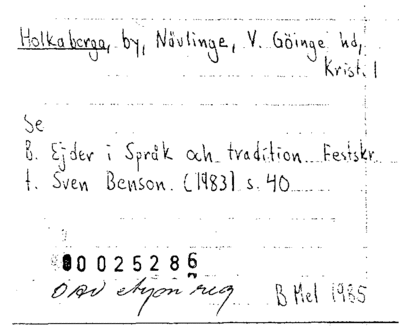 Holkaberga, by, Nävlinge, V. Göinge hd,
Krist. l
Se
B. Ejder i Språk och tradition. Festskr.
t. Sven Benson. (1983) s. 40
00025286
etym reg B Mel 1985